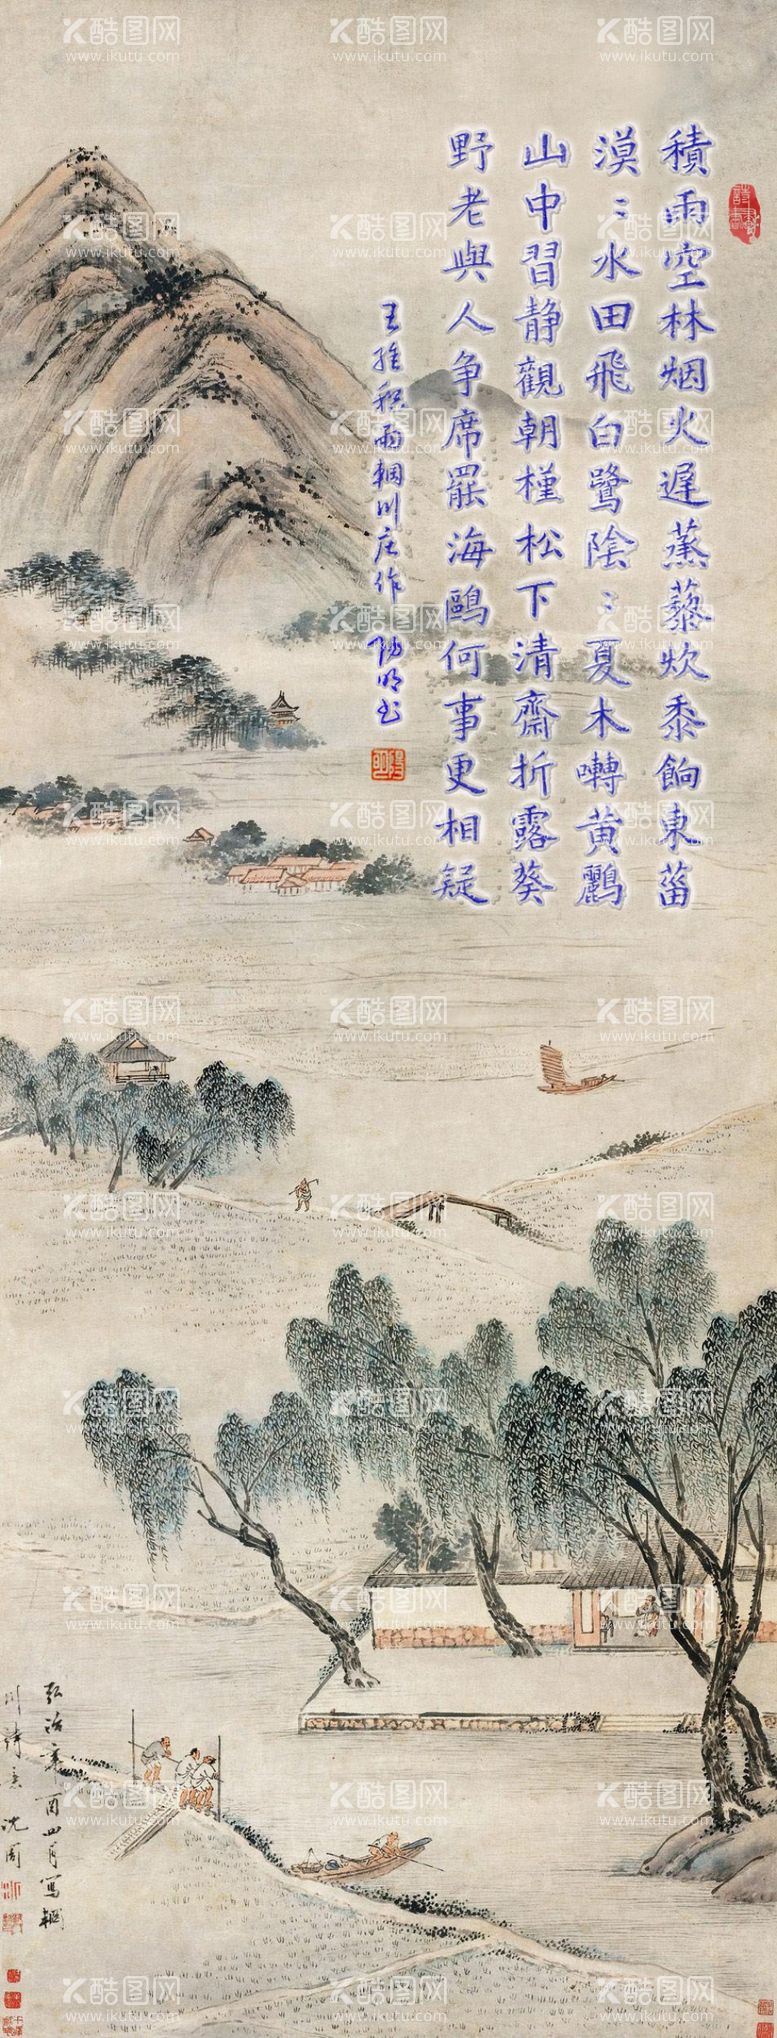 積雨空林烟火遲蒸藜炊黍餉東菑
漠〻水田飛白鷺陰〻夏木囀黄鸝
山中習静觀朝槿松下清齋折露葵
野老與人争席罷海鷗何事更相疑
王維积雨輞川庄作
弘治辛酉四月寫輞
川詩意 沈周
K酷图网
www.ikutu.com